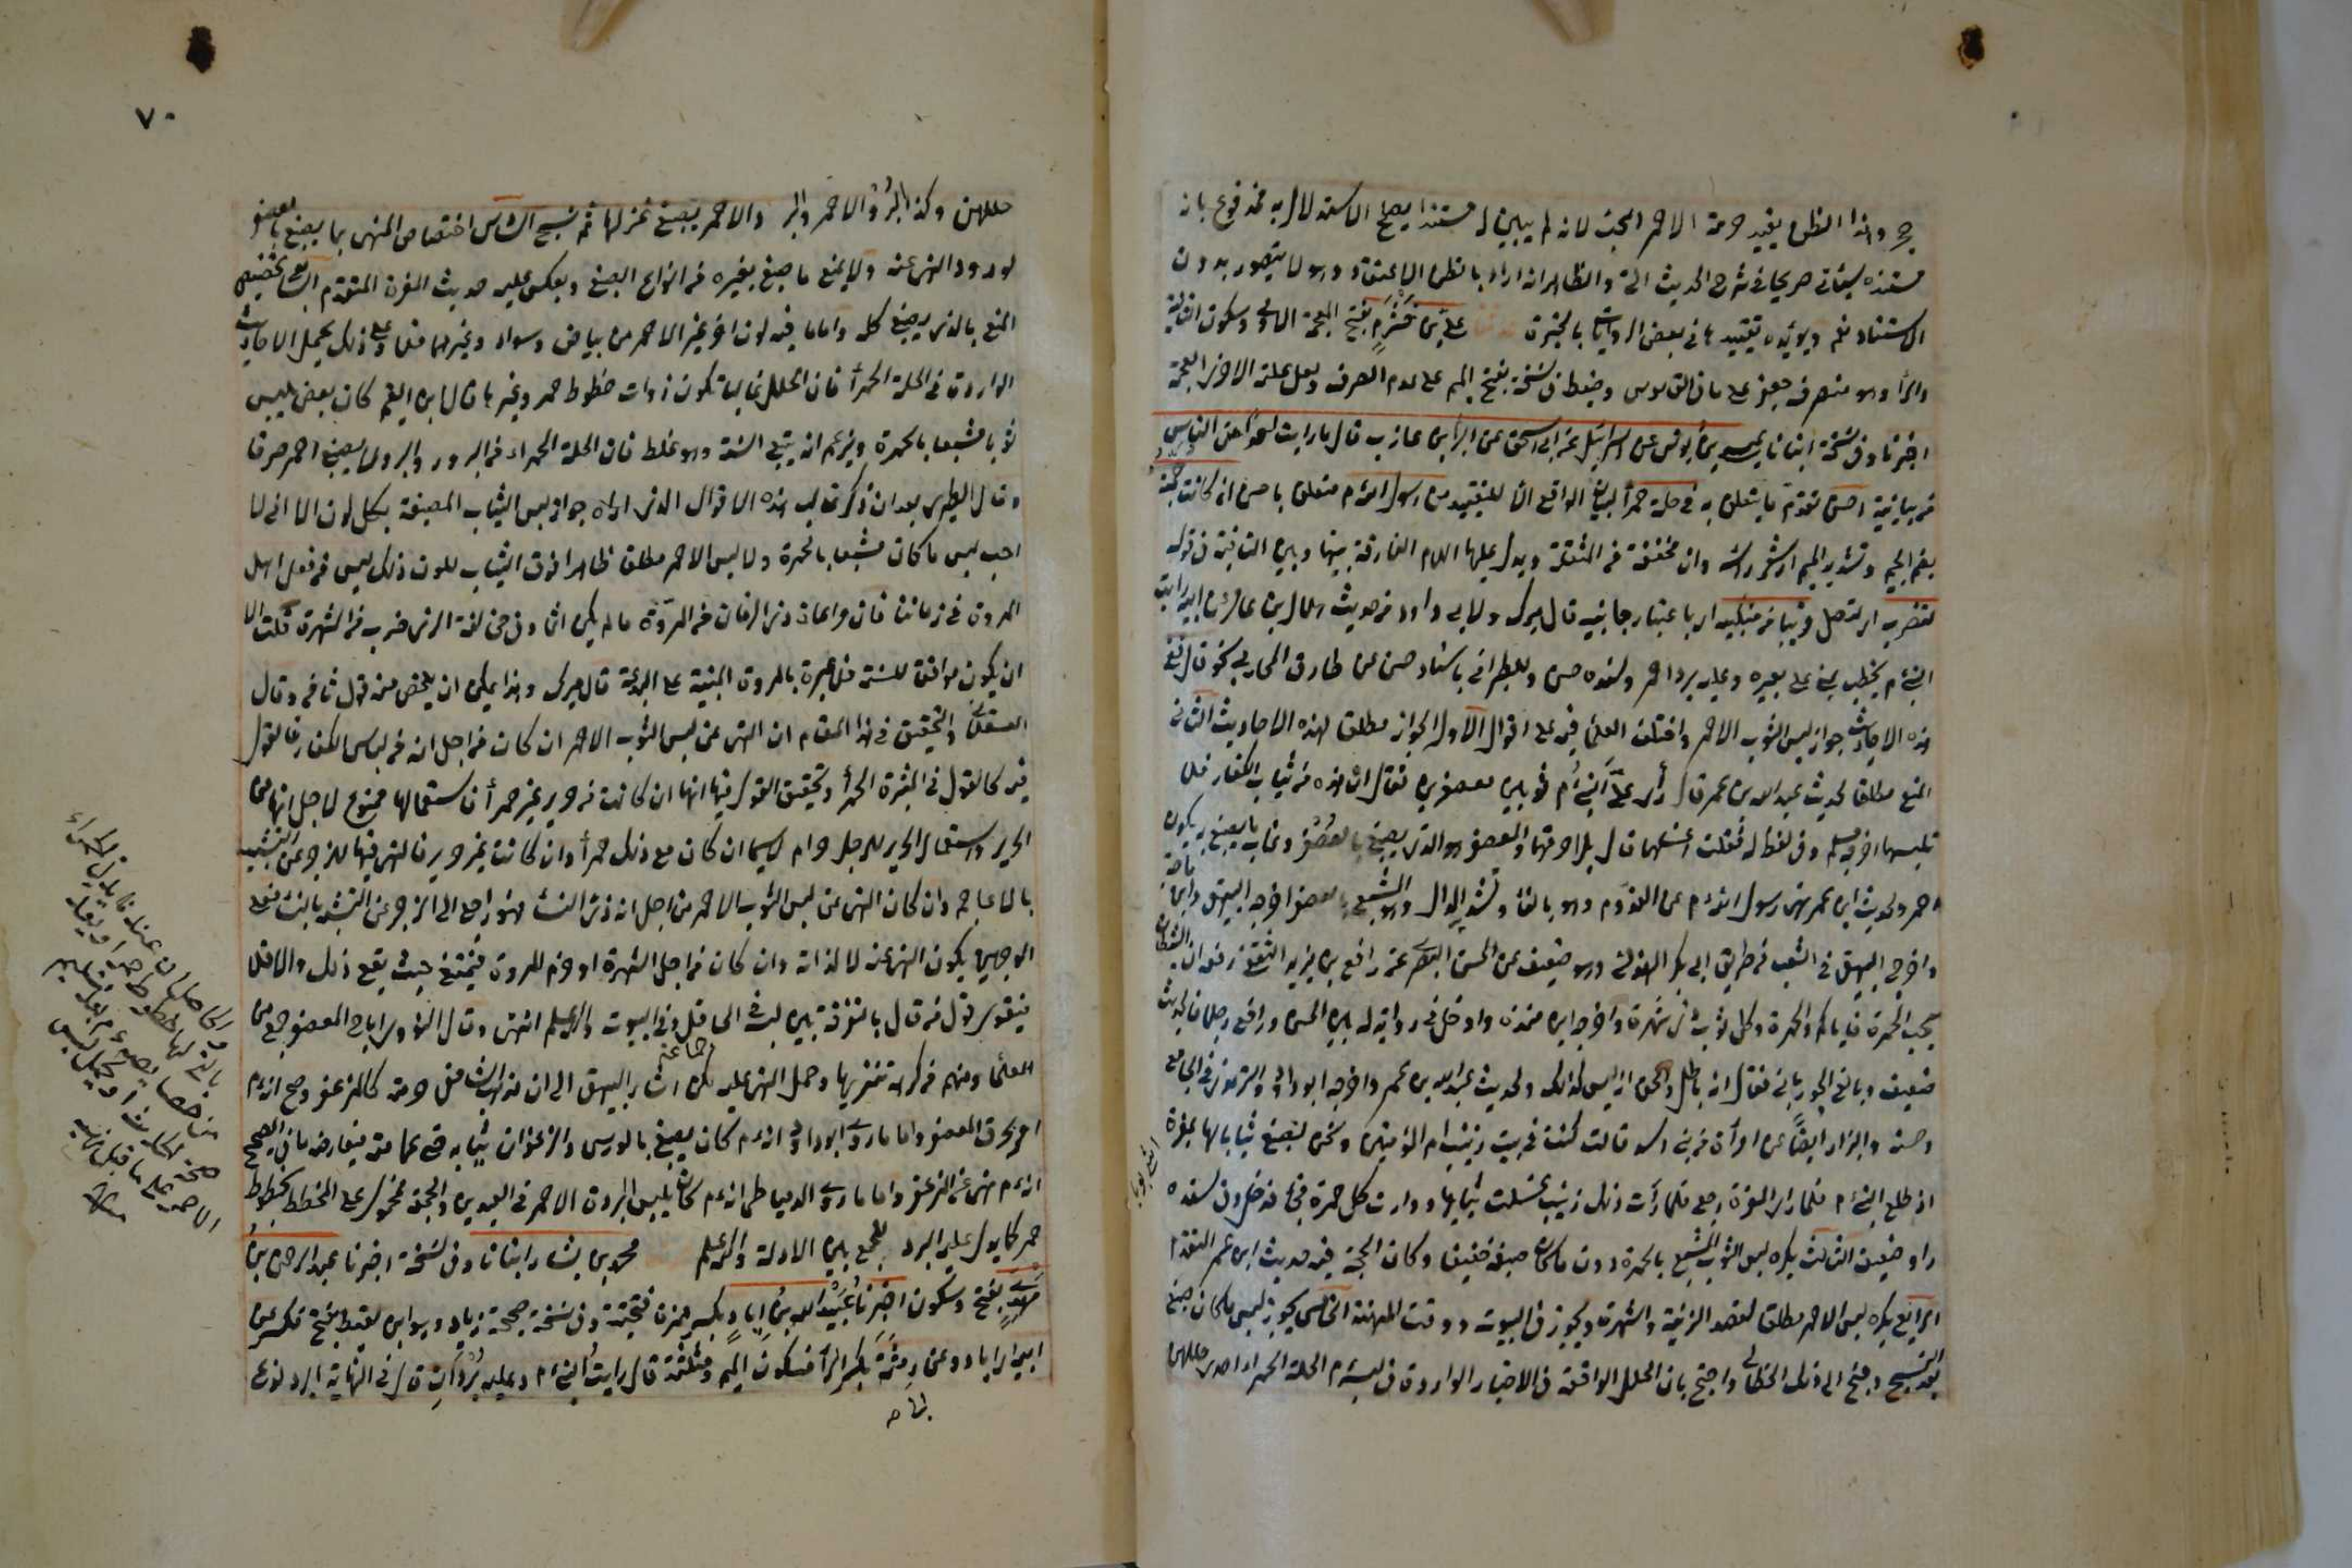 وهذا الظن يفيد حرمة الاحمر البحت لانه لم يبين له مستندا يصلح الاستدلال به مدفوع بان
مستنده سيأتي صريحا في شرح الحديث الآتي والظاهر انه اراد بالظن الاعتقاد وهو لا يتصور بدون
الاستناد نعم ويؤيده تقييدها في بعض الروايات بالحبرة علي بن خشرم بفتح المعجمة الاولى وسكون الثانية
والراء وهو منصرف على ما في القاموس وضبط في نسخة بفتح الميم على عدم الصرف ولعل علته الاخرى العجمة
اخبرنا وفي نسخة انبانا عيسى بن يونس عن اسرائيل عن ابي اسحق عن البراء بن عازب قال ما رايت احدا من الناس
من بيانية احسن تقدم ما يتعلق به في حلة حمراء لبيان الواقع لا للتقييد من رسول الله م متعلق باحسن ان كانت جمته
بضم الجيم وتشديد الميم اي شعر راسه وان مخففة من المثقلة ويدل عليها اللام الفارقة بينها وبين النافية في قوله
لتضرب اي لتصل قريبا من منكبيه اي باعتبار جانبيه قال ميرك ولابي داود من حديث هلال بن عامر عن ابيه رايت
النبي م يخطب بمنى على بعيره وعليه برد احمر وسنده حسن وللطبراني باسناد حسن عن طارق المحاربي نحوه قال ففي
هذه الاحاديث جواز لبس الثوب الاحمر واختلف العلماء فيه على اقوال الاول الجواز مطلقا لهذه الاحاديث الثاني
المنع مطلقا لحديث عبد الله بن عمر قال رأى علي النبي م ثوبين معصفرين فقال ان هذه من ثياب الكفار فلا
تلبسها اخرجه مسلم وفي لفظ له فقلت اغسلهما قال بل احرقهما والمعصفر هو الذي يصبغ بالعصفر وغالب ما يصبغ به يكون
احمر ولحديث ابن عمر نهى رسول الله م عن المفدم وهو بالفاء وتشديد الدال وهو المشبع بالعصفر اخرجه البيهقي وابن ماجة
واخرج البيهقي في الشعب من طريق ابي بكر الهذلي وهو ضعيف عن الحسن البصري عن رافع بن يزيد الثقفي رفعه ان الشيطان
يحب الحمرة فاياكم والحمرة وكل ثوب ذي شهرة واخرجه ابن منده وادخل في رواية له بين الحسن ورافع رجلا فالحديث
ضعيف وبالغ الجورباني فقال انه باطل والحق انه ليس كذلك ولحديث عبد الله بن عمر واخرجه ابو داود والترمذي في الجامع
وحسنه والبزار ايضا عن امرأة من بني اسد قالت كنت في بيت زينب ام المؤمنين ونحن نصبغ ثيابا لها بمغرة
اذ طلع النبي م فلما راى المغرة رجع فلما رأت ذلك زينب غسلت ثيابها ووارت كل حمرة فجاء فدخل وفي سنده
راو ضعيف الثالث يكره لبس الثوب المشبع بالحمرة دون ما كان صبغه خفيفا وكان الحجة فيه حديث ابن عمر المتقدم
الرابع يكره لبس الاحمر مطلقا لقصد الزينة والشهرة ويجوز في البيوت ووقت المهنة الخامس يجوز لبس ما كان صبغ
بعد النسيج وجنح الى ذلك الخطابي واحتج بان الحلل الواقعة في الاخبار الواردة في لبسه م الحلة الحمراء احدى حلل
٧٠
حللهن وكذا البرد الاحمر والبرد الاحمر يصبغ غزلها ثم ينسج السادس اختصاص النهي بما يصبغ بالعصفر
لورود النهي عنه ولا يمنع ما صبغ بغيره من انواع الصبغ ويعكس عليه حديث المغرة المتقدم السابع تخصيص
المنع بالذي يصبغ كله واما ما فيه لون اخر غير الاحمر من بياض وسواد وغيرهما فلا وعلى ذلك يحمل الاحاديث
الواردة في الحلة الحمراء فان الحلل غالبا تكون ذوات خطوط حمر وغيرها قال ابن القيم كان بعض يلبس
ثوبا مشبعا بالحمرة ويزعم انه يتبع السنة وهو غلط فان الحلة الحمراء من البرود والبرد لا يصبغ احمر صرفا
وقال الطبري بعد ان ذكر غالب هذه الاقوال الذي اراه جواز لبس الثياب المصبغة بكل لون الا اني لا
احب لبس ما كان مشبعا بالحمرة ولا لبس الاحمر مطلقا ظاهرا فوق الثياب لكون ذلك ليس من فعل اهل
المروة في زماننا فان مراعاة زي الزمان من المروة ما لم يكن اثما وفي مخالفة الزي ضرب من الشهرة قلت الا
ان يكون موافقا للسنة فلا عبرة بالمروة المبنية على البدعة قال ميرك وهذا يمكن ان يلخص منه قول ثامن وقال
العسقلاني والتحقيق في هذا المقام ان النهي عن لبس الثوب الاحمر ان كان من اجل انه من لباس الكفار فالقول
فيه كالقول في الميثرة الحمراء وتحقيق القول فيها انها ان كانت من حرير غير حمراء فاستعمالها ممنوع لاجل انها من
الحرير واستعمال الحرير للرجل حرام لا سيما ان كان مع ذلك حمراء وان كانت غير حرير فالنهي فيها للزجر عن التشبيه
بالاعاجم وان كان النهي عن لبس الثوب الاحمر من اجل انه زي النساء فهو راجع الى الزجر عن التشبه بالنساء فعلى
الوجهين يكون النهي عنه لا لذاته وان كان من اجل الشهرة او خرم المروة فيمتنع حيث يقع ذلك والا فلا
فيقوى قول من قال بالتفرقة بين لبسه في المحافل وفي البيوت والله اعلم انتهى وقال النووي اباح المعصفر جمع من
العلماء ومنهم من كرهه تنزيها وحمل النهي عليه لكن اشار البيهقي الى ان مذهب الشافعي حرمته كالمزعفر وصح انه م
امر بحرق المعصفر واما ما رواه ابو داود انه م كان يصبغ بالورس والزعفران ثيابه حتى عمامته فيعارضه ما في الصحيح
انه م نهى عن المزعفر واما ما رواه الدمياطي انه م كان يلبس البرد الاحمر في العيدين والجمعة فمحمول على المخطط بخطوط
حمر كما يدل عليه البرد للجمع بين الادلة والله اعلم محمد بن بشار انبانا وفي نسخة اخبرنا عبد الرحمن بن
مهدي بفتح وسكون اخبرنا عبيد الله بن اياد بكسر همزة فتحتية وفي نسخة صحيحة زياد وهو ابن لقيط بفتح فكسر عن
ابيه اي اياد وعن رمثة بكسر الراء فسكون الميم ومثلثة قال رايت النبي م وعليه بردان قال في النهاية البرد نوع